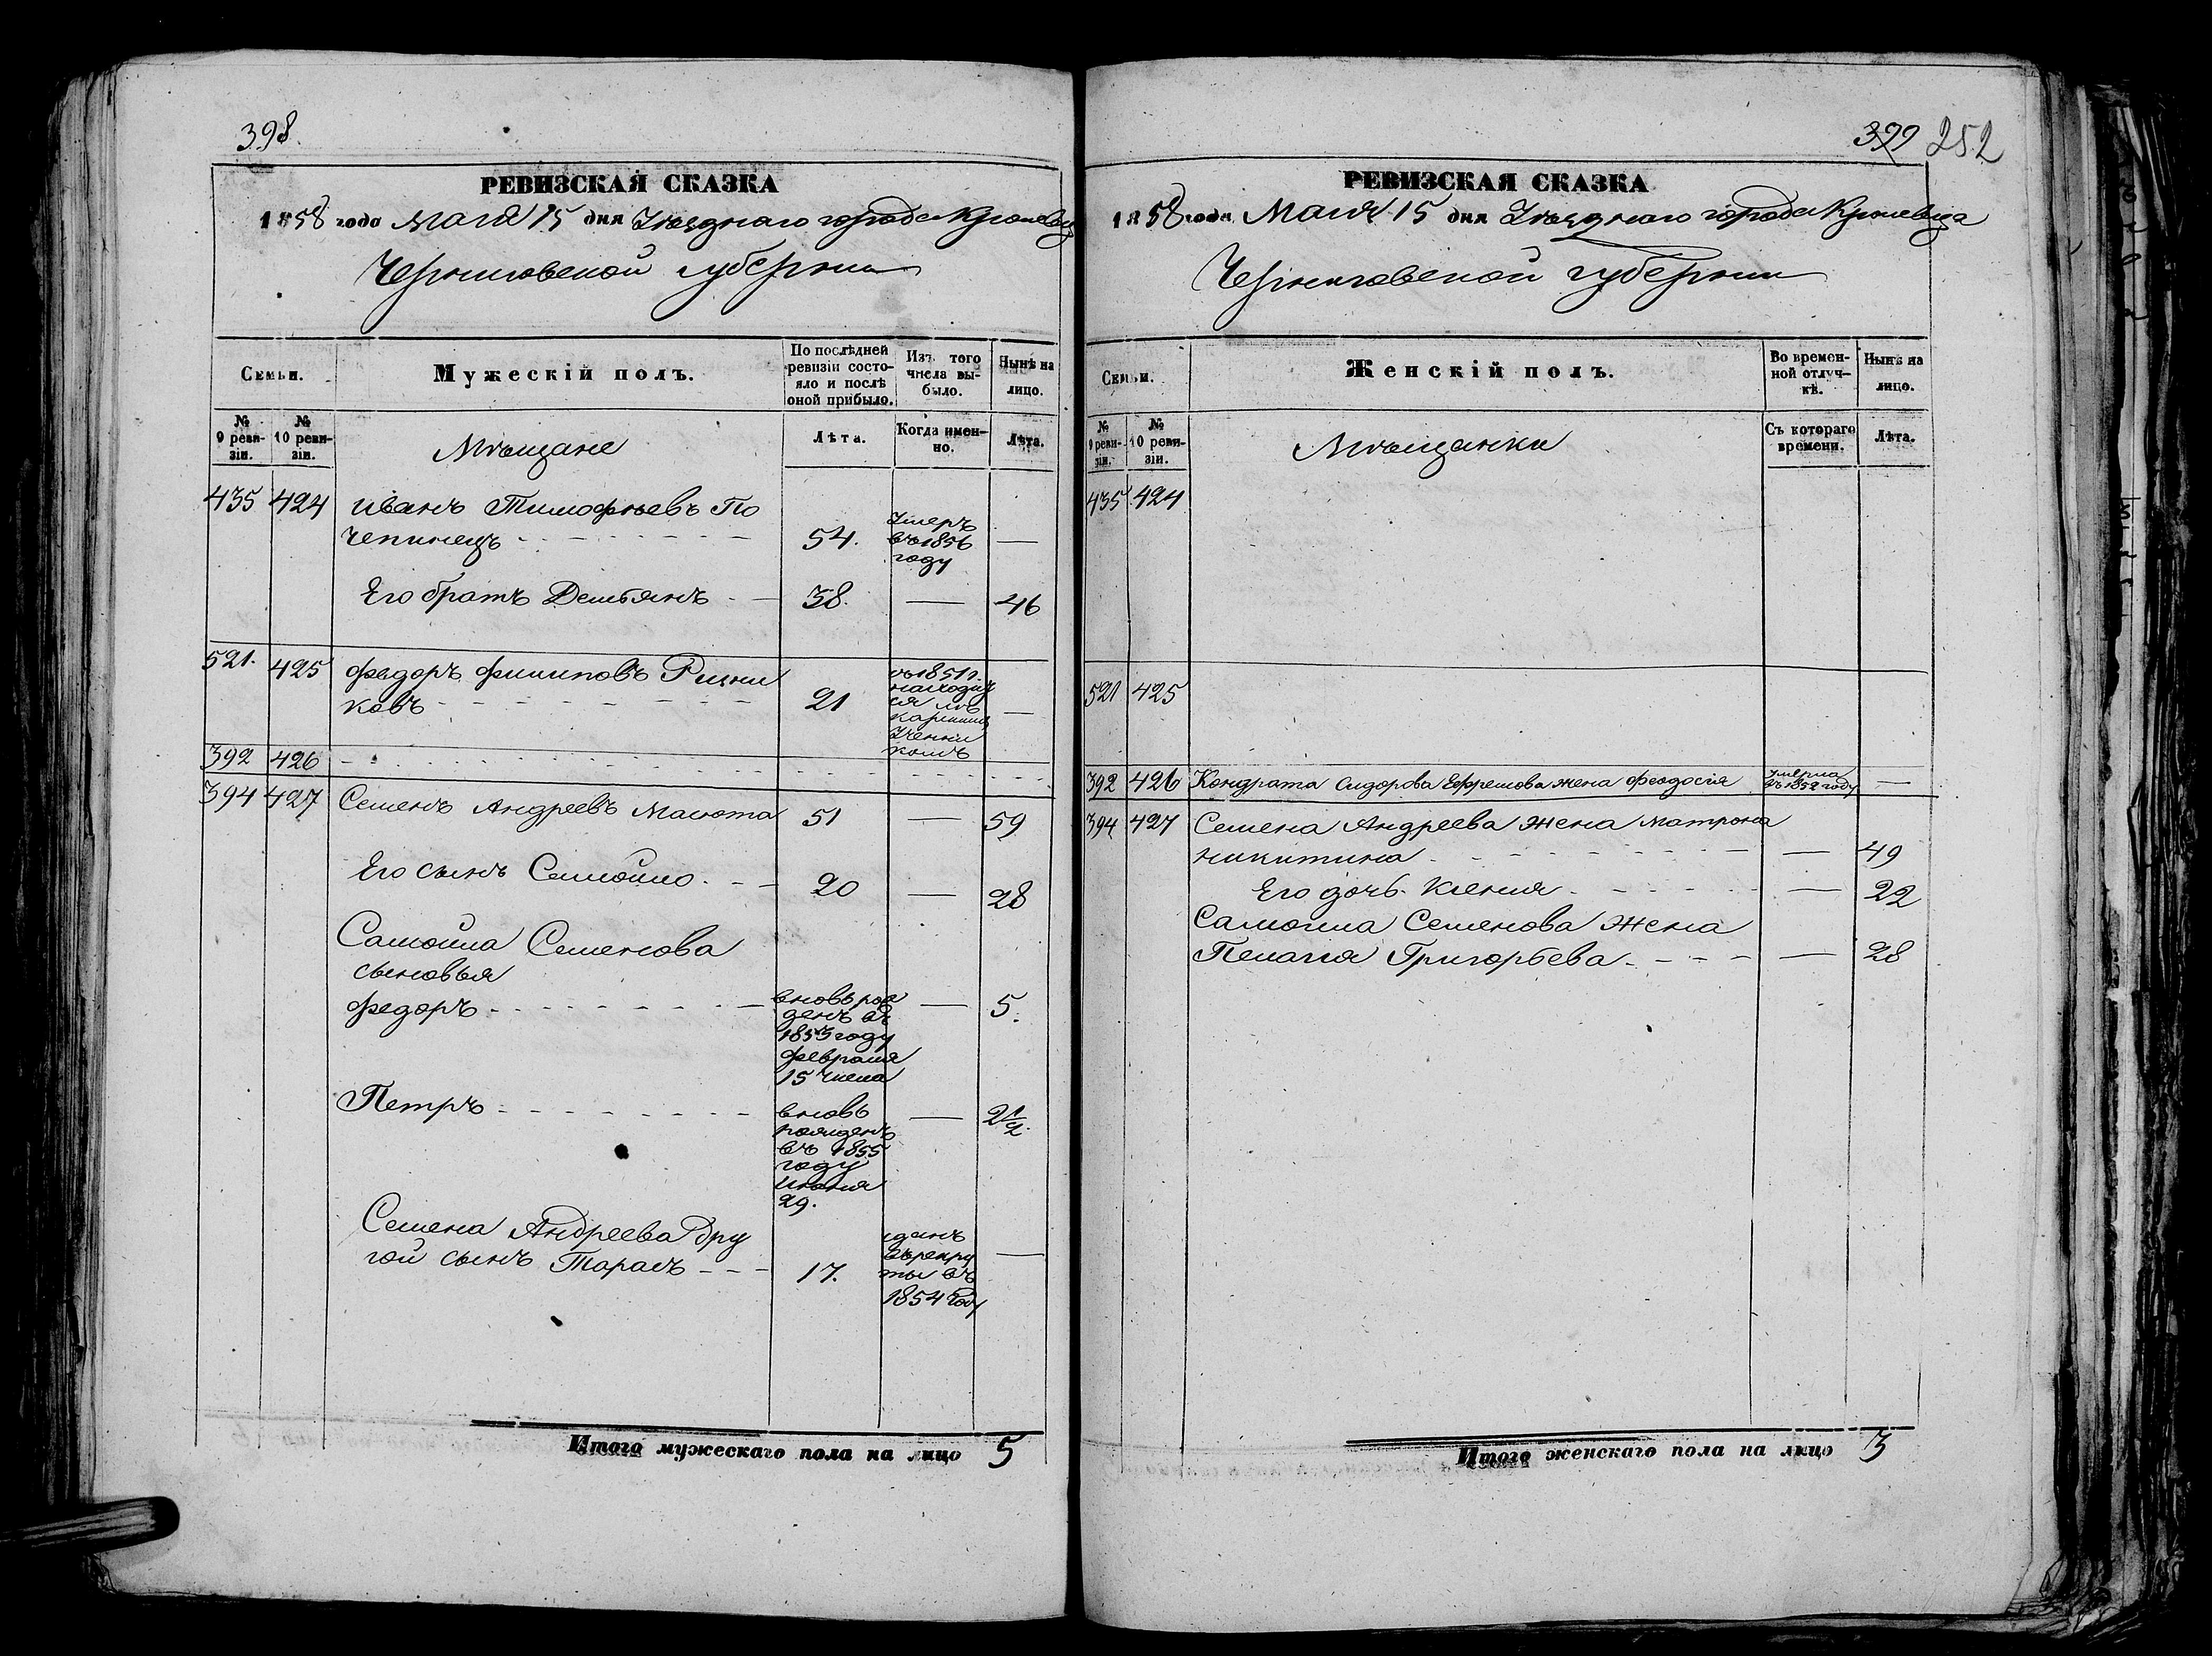 398.
РЕВИЗСКАЯ СКАЗКА
1858 года Мая 15 дня Уѣзднаго города Кролевца
Черниговской губернии
Семьи.
Мужескій полъ.
По послѣдней ревизіи состояло и послѣ оной прибыло.
Изъ того числа выбыло.
Нынѣ на лицо.
№ 9 ревизіи.
№ 10 ревизіи.
Мѣщане
Лѣта.
Когда именно.
Лѣта.
435 424 Иванъ Тимофѣевъ По
чепинецъ 54. Умеръ въ 1856 году —
Его братъ Демьянъ 38. — 46
521. 425 Федоръ Филиповъ
ковъ 21 1851 —
392 426
394 427 Семенъ Андреевъ Малюта 51 — 59
Его сынъ Самойло 20 — 28
Самойла Семенова
сыновья
Федоръ вновь рож
денъ въ
1853 году
февраля
15 числа — 5.
Петръ вновь
рожденъ
въ 1855
году
июня
29. — 2 1/2.
Семена Андреева дру
гой сынъ Тарасъ 17. сданъ
въ рекру
ты въ
1854 году —
Итого мужескаго пола на лицо 5
399 252
РЕВИЗСКАЯ СКАЗКА
1858 года Мая 15 дня Уѣзднаго города Кролевца
Черниговской губернии
Семьи.
Женскій полъ.
Во временной отлучкѣ.
Нынѣ на лицо.
№ 9 ревизіи.
№ 10 ревизіи.
Мѣщанки
Съ котораго времени.
Лѣта.
435 424
521 425
392 426 Кондрата Сидорова Ефремова жена Феодосія умерла въ 1852 году —
394 427 Семена Андреева жена Матрона
Никитина — 49
Его дочь Ксения — 22
Самойла Семенова жена
Пелагея Григорьева — 28
Итого женскаго пола на лицо 3